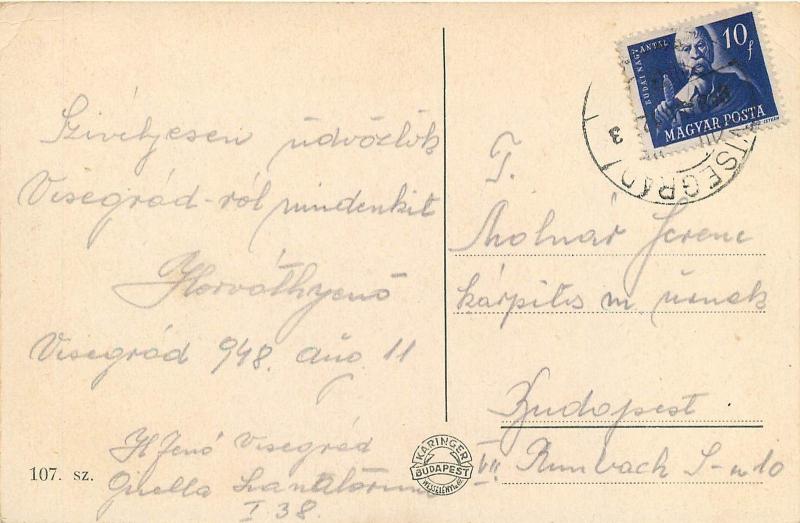 Szivélyesen üdvözlök
Visegrád-ról mindenkit
Horváth Jenő
Visegrád 948. aug 11
H Jenő Visegrád
I 38.
107. sz.
KARINGER
BUDAPEST
BUDAI NAGY ANTAL
10 f
MAGYAR POSTA
3
T.
Molnár Ferenc
kárpitos m. úrnak
Budapest
VII Rumbach S-u 10